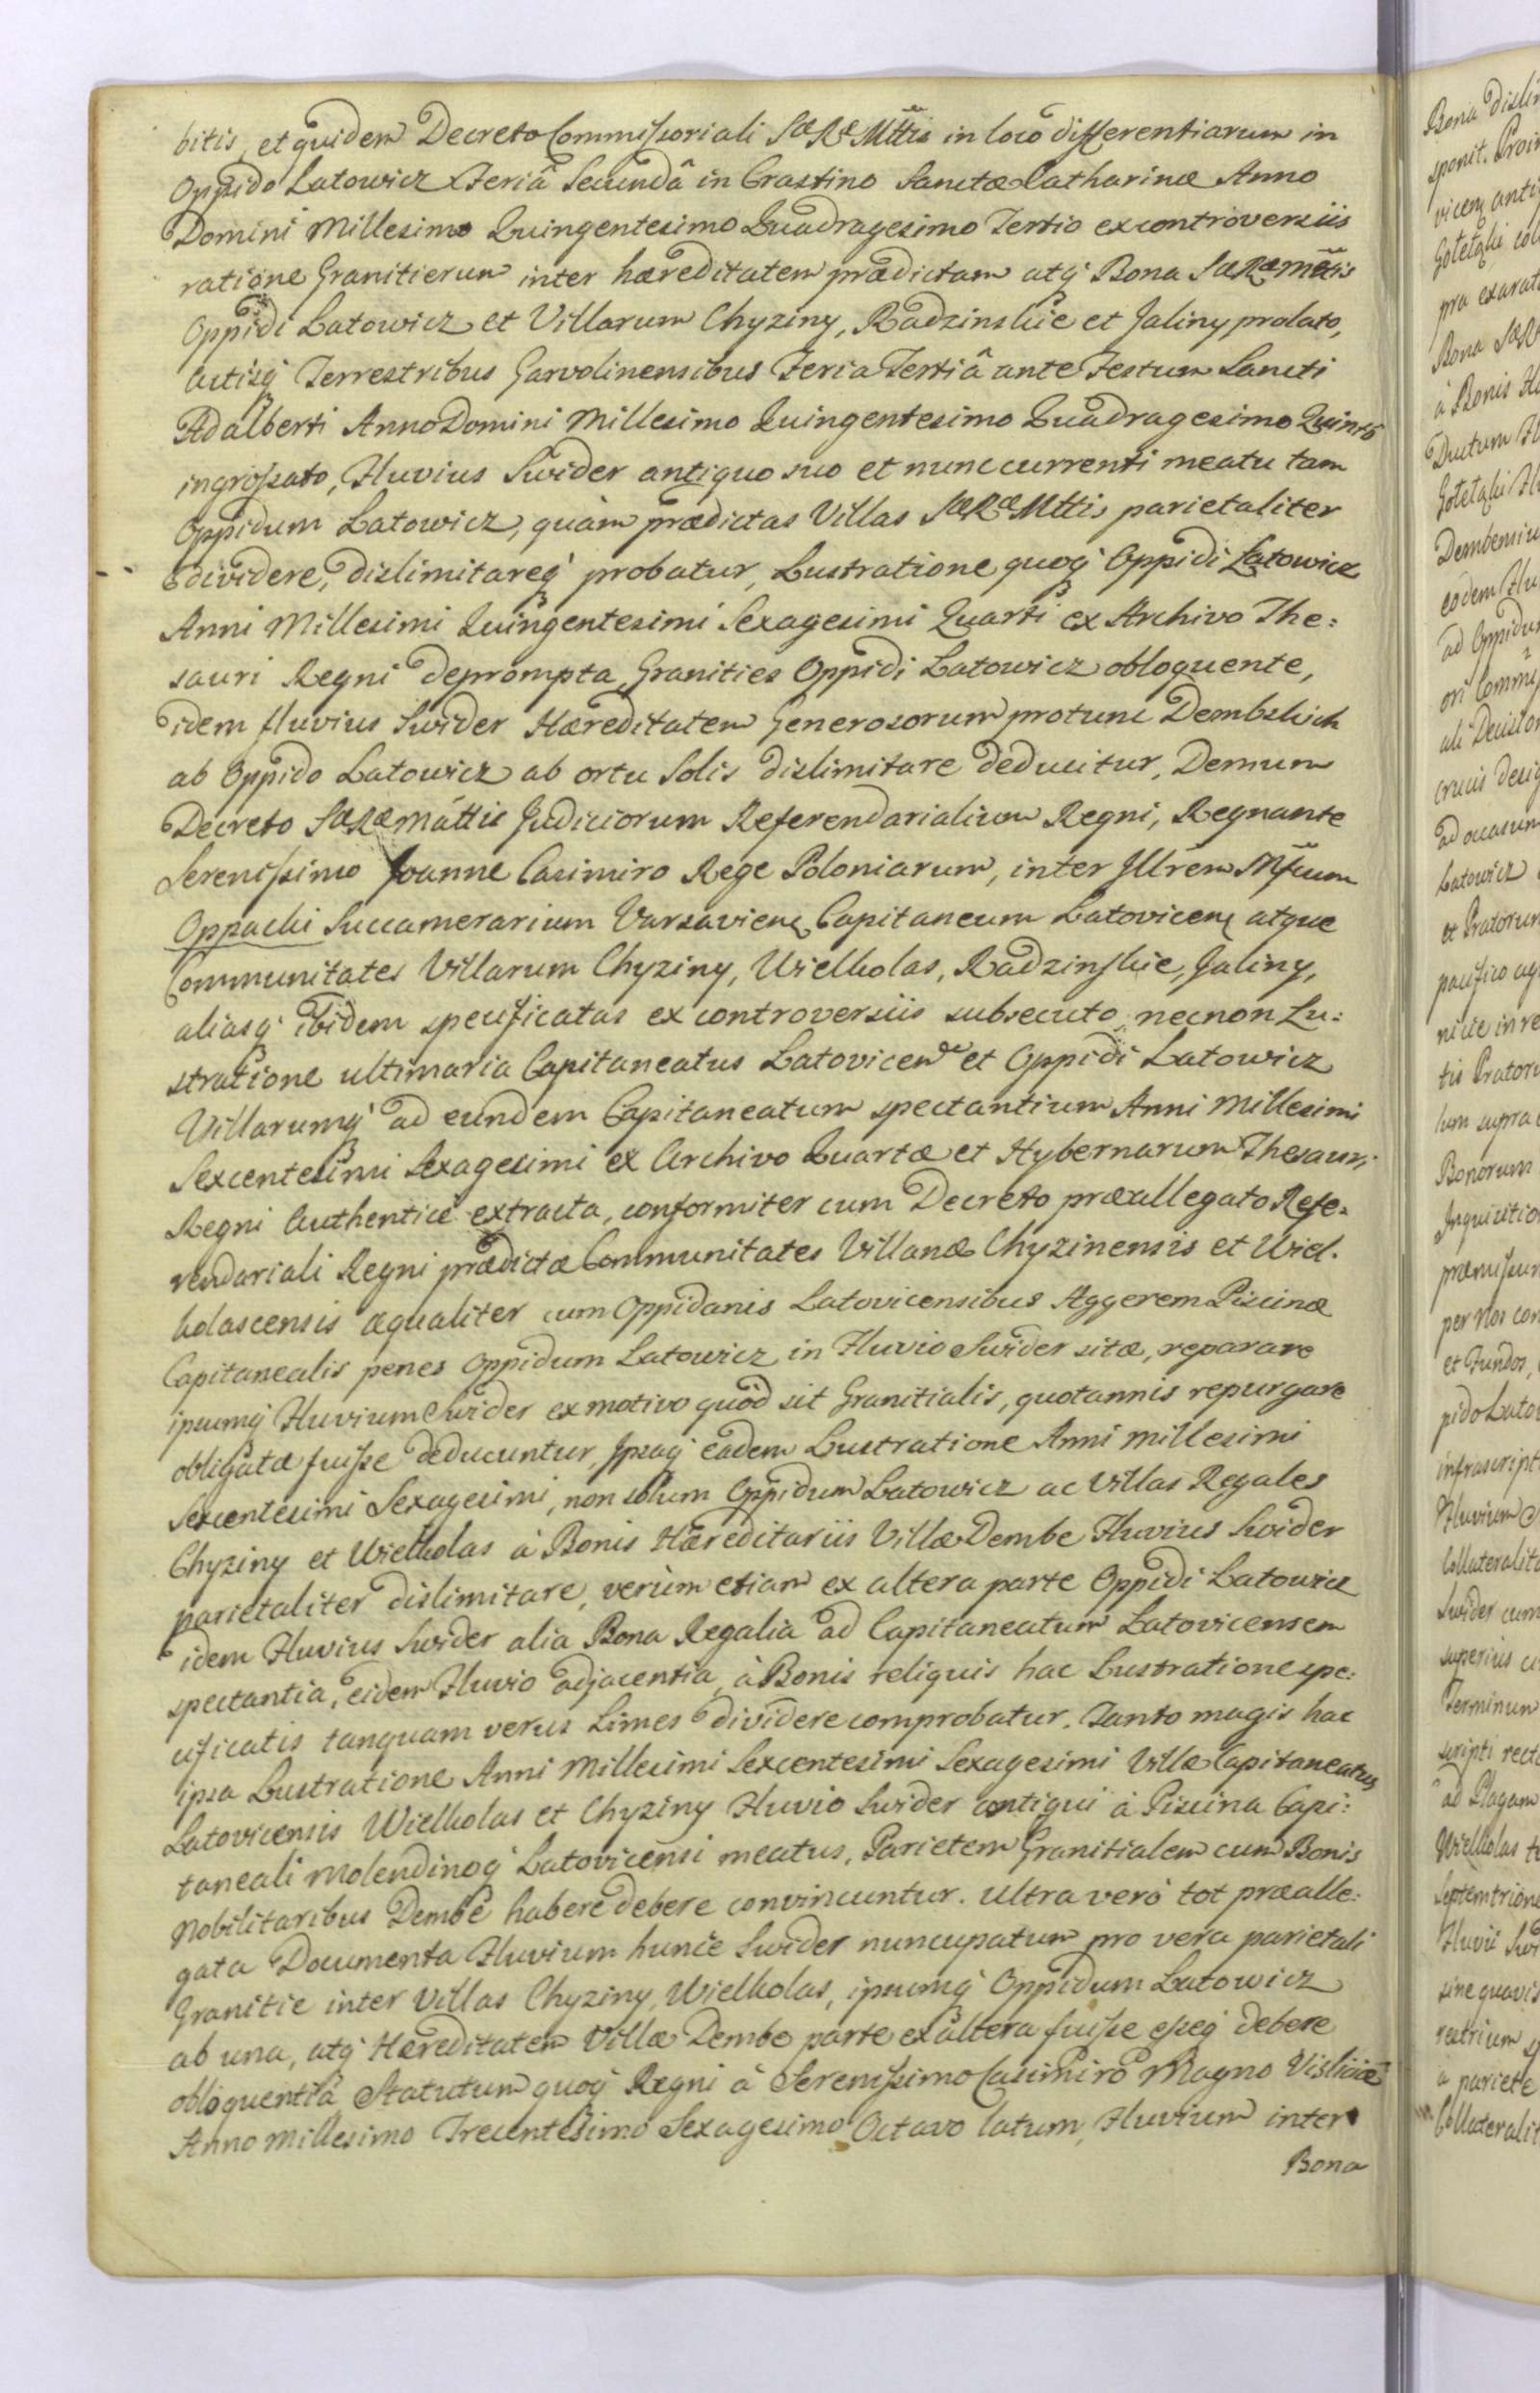 bitis, et quidem Decreto Commissoriali SæRæ Mttis in loco differentiarum in
Oppido Latowicz Feriâ Secundâ in Crastino Sanctæ Catharinæ Anno
Domini Millesimo Quingentesimo Quadragesimo Tertio ex controversiis
ratione Granitierum inter hæreditatem prædictam atq Bona SæRæ Mttis
Oppidi Latowicz et Villarum Chyziny, Radzinskie et Jaliny prolato,
Actisq Terrestribus Garvolinensibus Feria Tertiâ ante Festum Sancti
Adalberti Anno Domini Millesimo Quingentesimo Quadragesimo Quinto
ingrossato, Fluvius Swider antiquo suo et nunc currenti meatu tam
Oppidum Latowicz, quàm prædictas Villas SæRæ Mttis parietaliter
dividere, dislimitareq probatur, Lustratione quoq Oppidi Latowicz
Anni Millesimi Quingentesimi Sexagesimi Quarti ex Archivo The:
sauri Regni deprompta, Granities Oppidi Latowicz obloquente,
idem fluvius Swider Hæreditatem Generosorum protunc Dembskich
ab Oppido Latowicz ab ortu Solis dislimitare deducitur, Demum
Decreto SæRæ Mattis Judiciorum Referendarialium Regni, Regnante
Serenissimo Joanne Casimiro Rege Poloniarum, inter Jllrem Mfcum
Oppacki Succamerarium Varsavien Capitaneum Latovicen atque
Communitates Villarum Chyziny, Wielkolas, Radzinskie, Jaliny,
aliasq ibidem specificatas ex controversiis subsecuto, necnon Lu:
stratione ultimaria Capitaneatus Latovicen et Oppidi Latowicz
Villarumq ad eundem Capitaneatum spectantium Anni Millesimi
Sexcentesimi Sexagesimi ex Archivo Quartæ et Hybernarum Thesauri
Regni Authenticè extracta, conformiter cum Decreto præallegato Refe:
rendariali Regni prædictæ Communitates Villanæ Chyzinensis et Wiel:
kolascensis æqualiter cum Oppidanis Latovicensibus Aggerem Piscinæ
Capitanealis penes Oppidum Latowicz in Fluvio Swider sitæ, reparare
ipsumq Fluvium Swider ex motivo quòd sit Granitialis, quotannis repurgare
obligatæ fuisse deducuntur, Jpsaq eadem Lustratione Anni Millesimi
Sexcentesimi Sexagesimi, non solum Oppidum Latowicz ac Villas Regales
Chyziny et Wielkolas à Bonis Hæreditariis Villæ Dembe Fluvius Swider
parietaliter dislimitare, verùm etiam ex altera parte Oppidi Latowicz
idem Fluvius Swider alia Bona Regalia ad Capitaneatum Latovicensem
spectantia, eidem Fluvio adjacentia, à Bonis reliquis hac Lustratione spe:
cificatis tanquam verus Limes dividere comprobatur. Tanto magis hac
ipsa Lustratione Anni Millesimi Sexcentesimi Sexagesimi Villæ Capitaneatus
Latovicensis Wielkolas et Chyziny Fluvio Swider contigui à Piscina Capi:
taneali Molendinoq Latovicensi meatus, Parietem Granitialem cum Bonis
Nobilitaribus Dembe habere debere convincuntur. Ultra verò tot præalle:
gata Documenta Fluvium huncce Swider nuncupatum pro vera parietali
Granitie inter Villas Chyziny, Wielkolas, ipsumq Oppidum Latowicz
ab una, atq Hæreditatem Villæ Dembe parte ex altera fuisse esseq debere
obloquentiâ Statutum quoq Regni à Serenissimo Casimiro Magno Visliciæ
Anno Millesimo Trecentesimo Sexagesimo Octavo latum, Fluvium inter
Bona